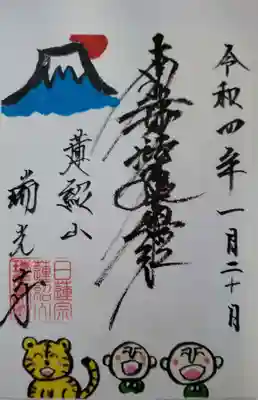 令和四年一月二十日
南無妙法蓮華経
山
瑞光寺
日蓮宗